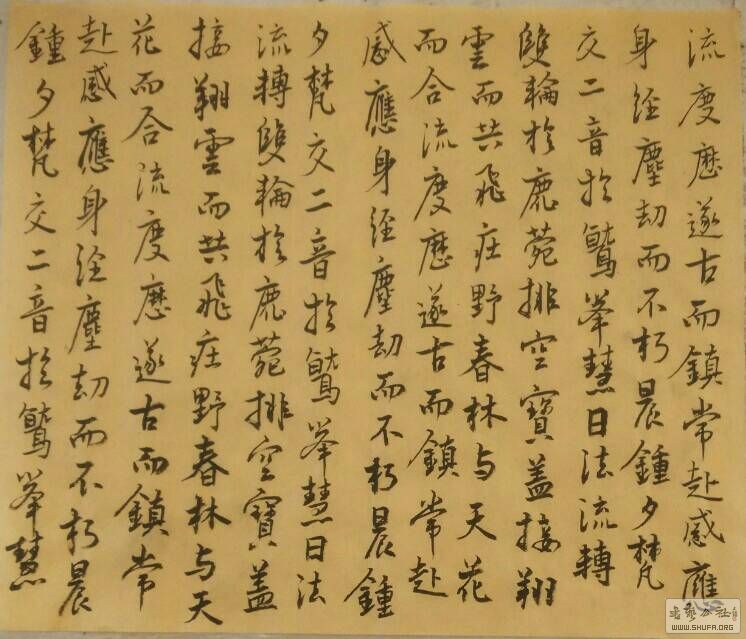 流度歷遂古而鎮常赴感應
身經塵劫而不朽晨鍾夕梵
交二音於鷲峯慧日法流轉
雙輪於鹿菀排空寶蓋接翔
雲而共飛庄野春林与天花
而合流度歷遂古而鎮常赴
感應身經塵劫而不朽晨鍾
夕梵交二音於鷲峯慧日法
流轉雙輪於鹿菀排空寶蓋
接翔雲而共飛庄野春林与天
花而合流度歷遂古而鎮常
赴感應身經塵劫而不朽晨
鍾夕梵交二音於鷲峯慧
WWW.SHUFA.ORG